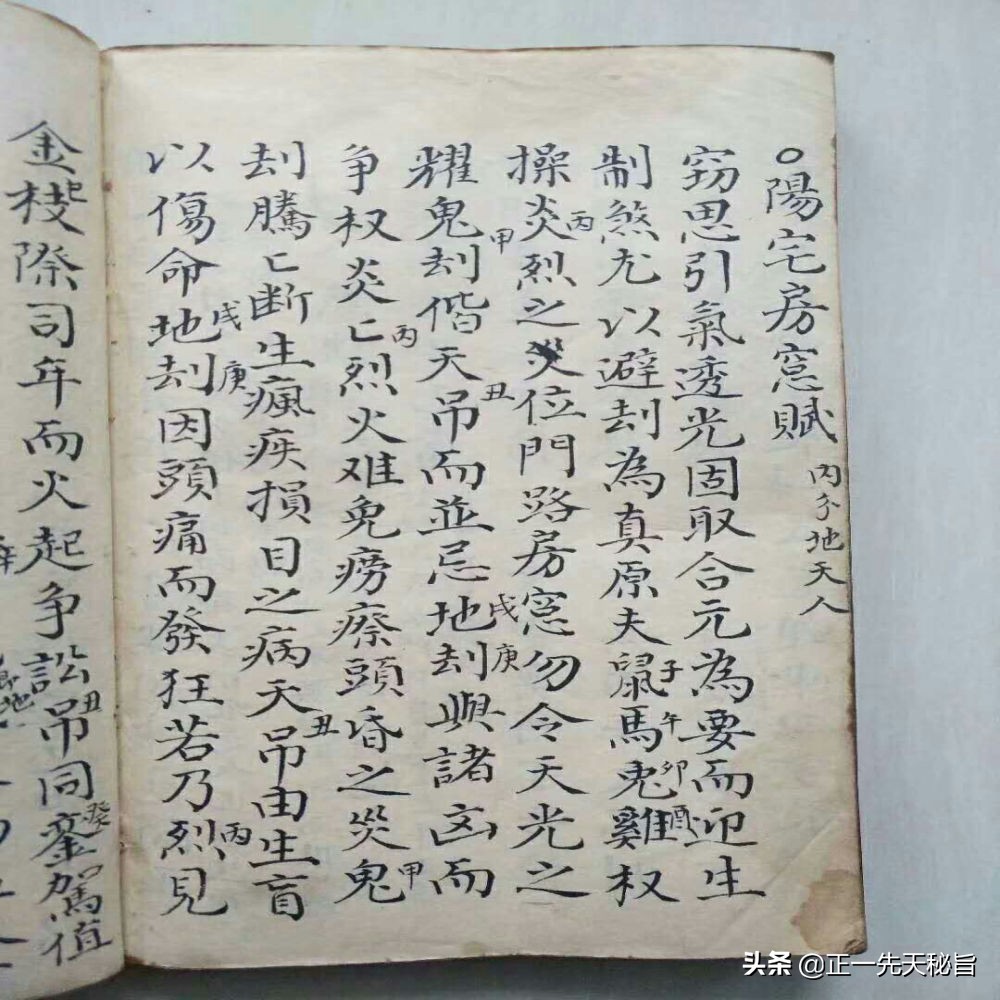 ○陽宅房窓賦 内分地天人
窃思引氣透光固取合元為要而迎生
制煞尤以避刦為真原夫鼠子馬午兔卯雞酉权
操炎丙烈之災位門路房窓勿令天光之
耀鬼甲刦偕天吊丑而並忌地戌刦庚與諸凶而
争权炎匕丙烈火难免痨瘵頭昏之災鬼甲
刦騰匕断生瘋疾損目之病天吊丑由生盲
以傷命地戌刦庚因頭痛而發狂若乃烈丙見
金際司年而火起争訟吊丑同癸駕值
头条 @正一先天秘旨